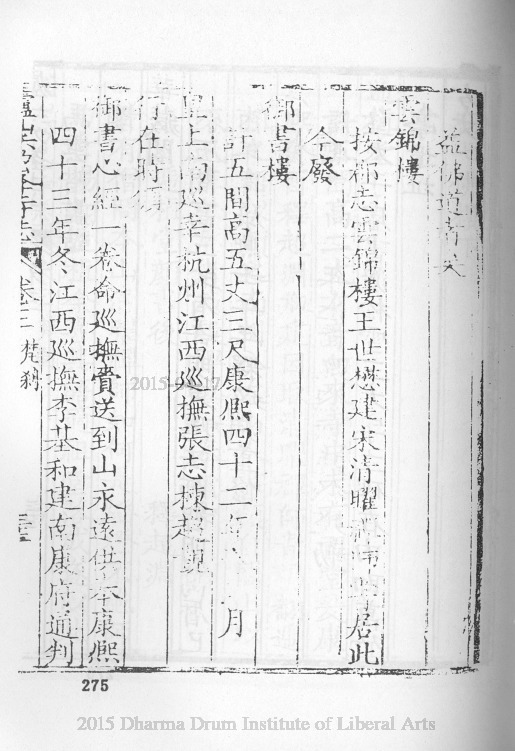 益佛道者矣
雲錦樓
按郡志雲錦樓王世懋建宋清曜禪師嘗居此
今廢
御書樓
計五間高五丈三尺康熙四十二年 月
皇上南巡幸杭州江西巡撫張志棟趨覲
行在時
御書心經一卷命巡撫賫送到山永遠供奉康熙
四十三年冬江西巡撫李基和建南康府通判
卷三 梵刹
275
2015 Dharma Drum Institute of Liberal Arts